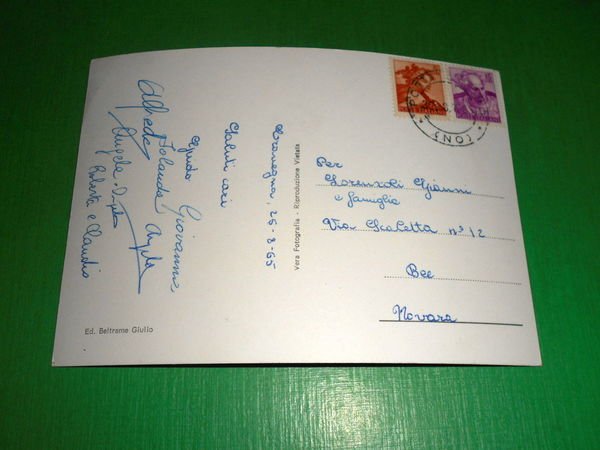 Cravegna, 25-8-65
Saluti cari
Guido Giovanna
Alfredo Iolanda Angela
Angela
Roberto e Claudio
Vera Fotografia - Riproduzione Vietata
Ed. Beltrame Giulio
Per
Lorenzoli Gianni
e famiglia
Via Scaletta n° 12
Bee
Novara